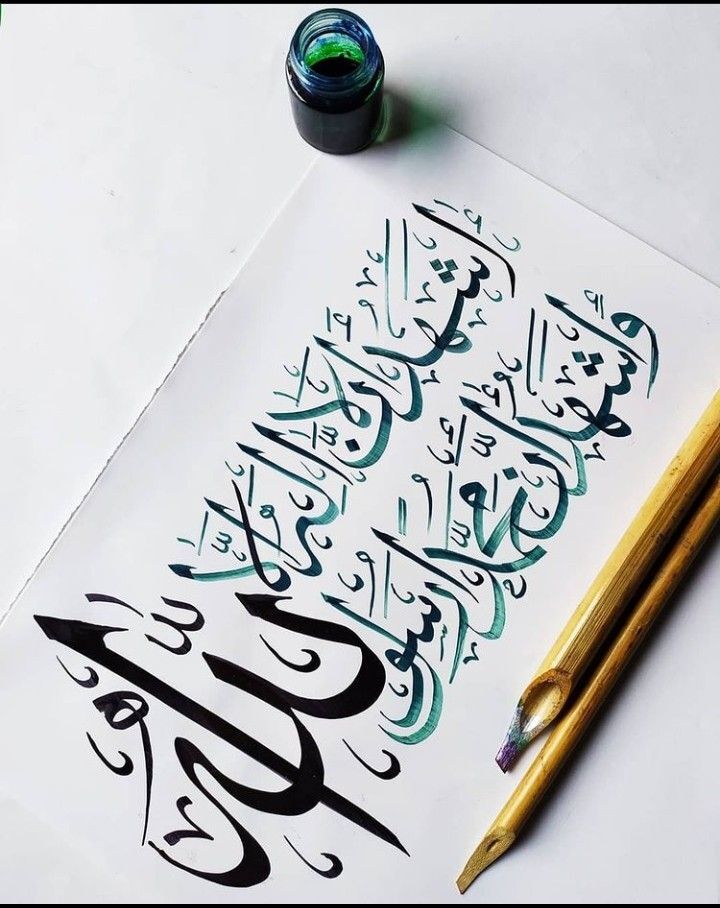 أَشْهَدُ أَن لَّا إِلَٰهَ إِلَّا اللّٰه
وَأَشْهَدُ أَنَّ مُحَمَّدًا رَّسُولُ اللّٰه